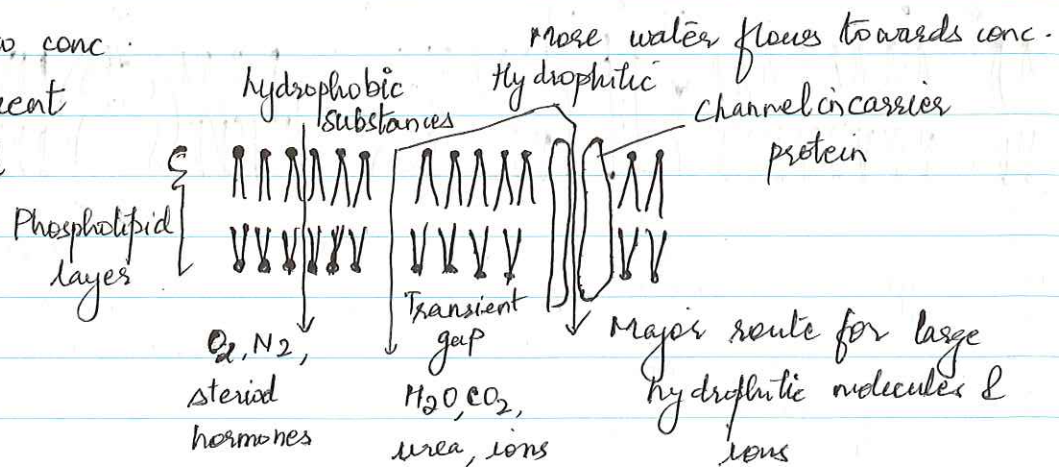 conc.
More water flows towards conc.
hydrophobic
substances
Hydrophilic
channel in carrier
protein
Phospholipid
layer
O2, N2,
steriod
hormones
Transient
gap
H2O, CO2,
urea, ions
Major route for large
hydrophilic molecules &
ions